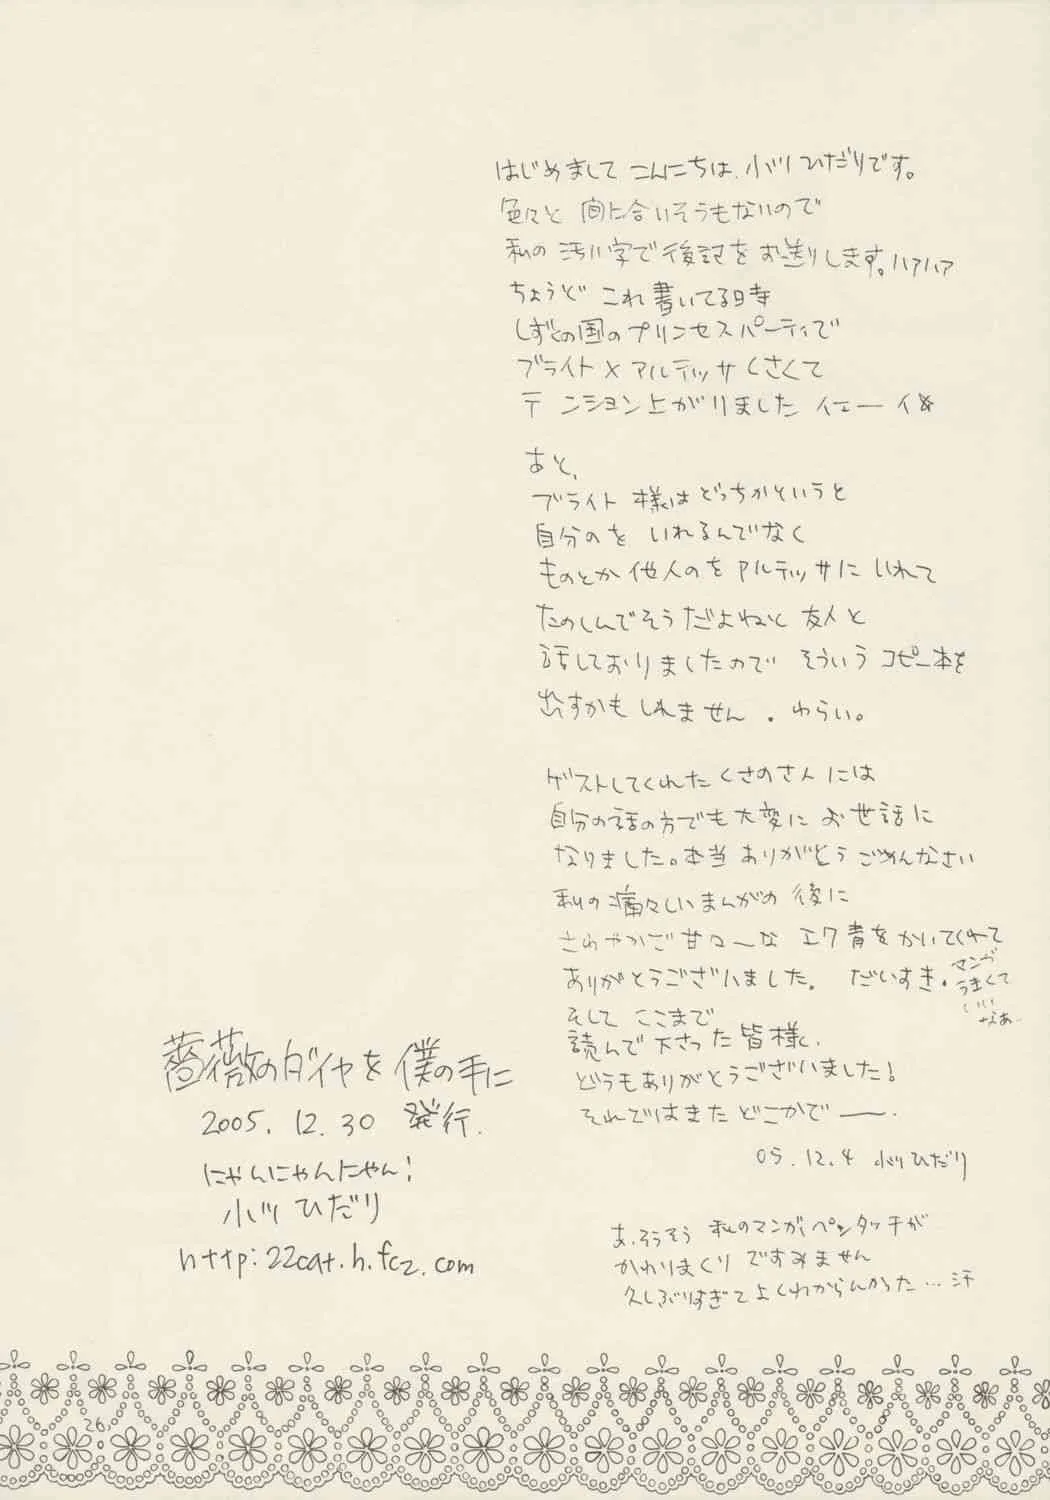 はじめまして こんにちは、小川ひだりです。
色々と 間に合いそうもないので
私の 汚い字で 後記を お送りします。ハァハァ
ちょうど これ 書いてる時
しずくの国のプリンセスパーティで
ブライト×アルテッサくさくて
テンション上がりました イエーイ☆
あと、
ブライト様はどっちかというと
自分のを いれるんでなく
ものとか他人のをアルテッサにいれて
たのしんでそうだよねと 友人と
話しておりましたので そういう コピー本を
出すかもしれません。わらい。
ゲストしてくれた くさのさんには
自分の話の方でも大変に お世話に
なりました。本当 ありがとう ごめんなさい
私の 痛々しいまんがの 後に
さわやかで甘々〜な エク青をかいてくれて
ありがとうございました。 だいすき。
マンガ
うまくて
いい
なあ
そして ここまで
読んで下さった皆様、
どうもありがとうございました!
それではまた どこかでー。
05.12.4 小川ひだり
あ、そうそう 私のマンガ、ペンタッチが
かわりまくり ですみません
久しぶりすぎて よくわからんかった…汗
薔薇のダイヤを僕の手に
2005.12.30 発行.
にゃんにゃんにゃん!
小川 ひだり
http:22cat.h.fc2.com
26